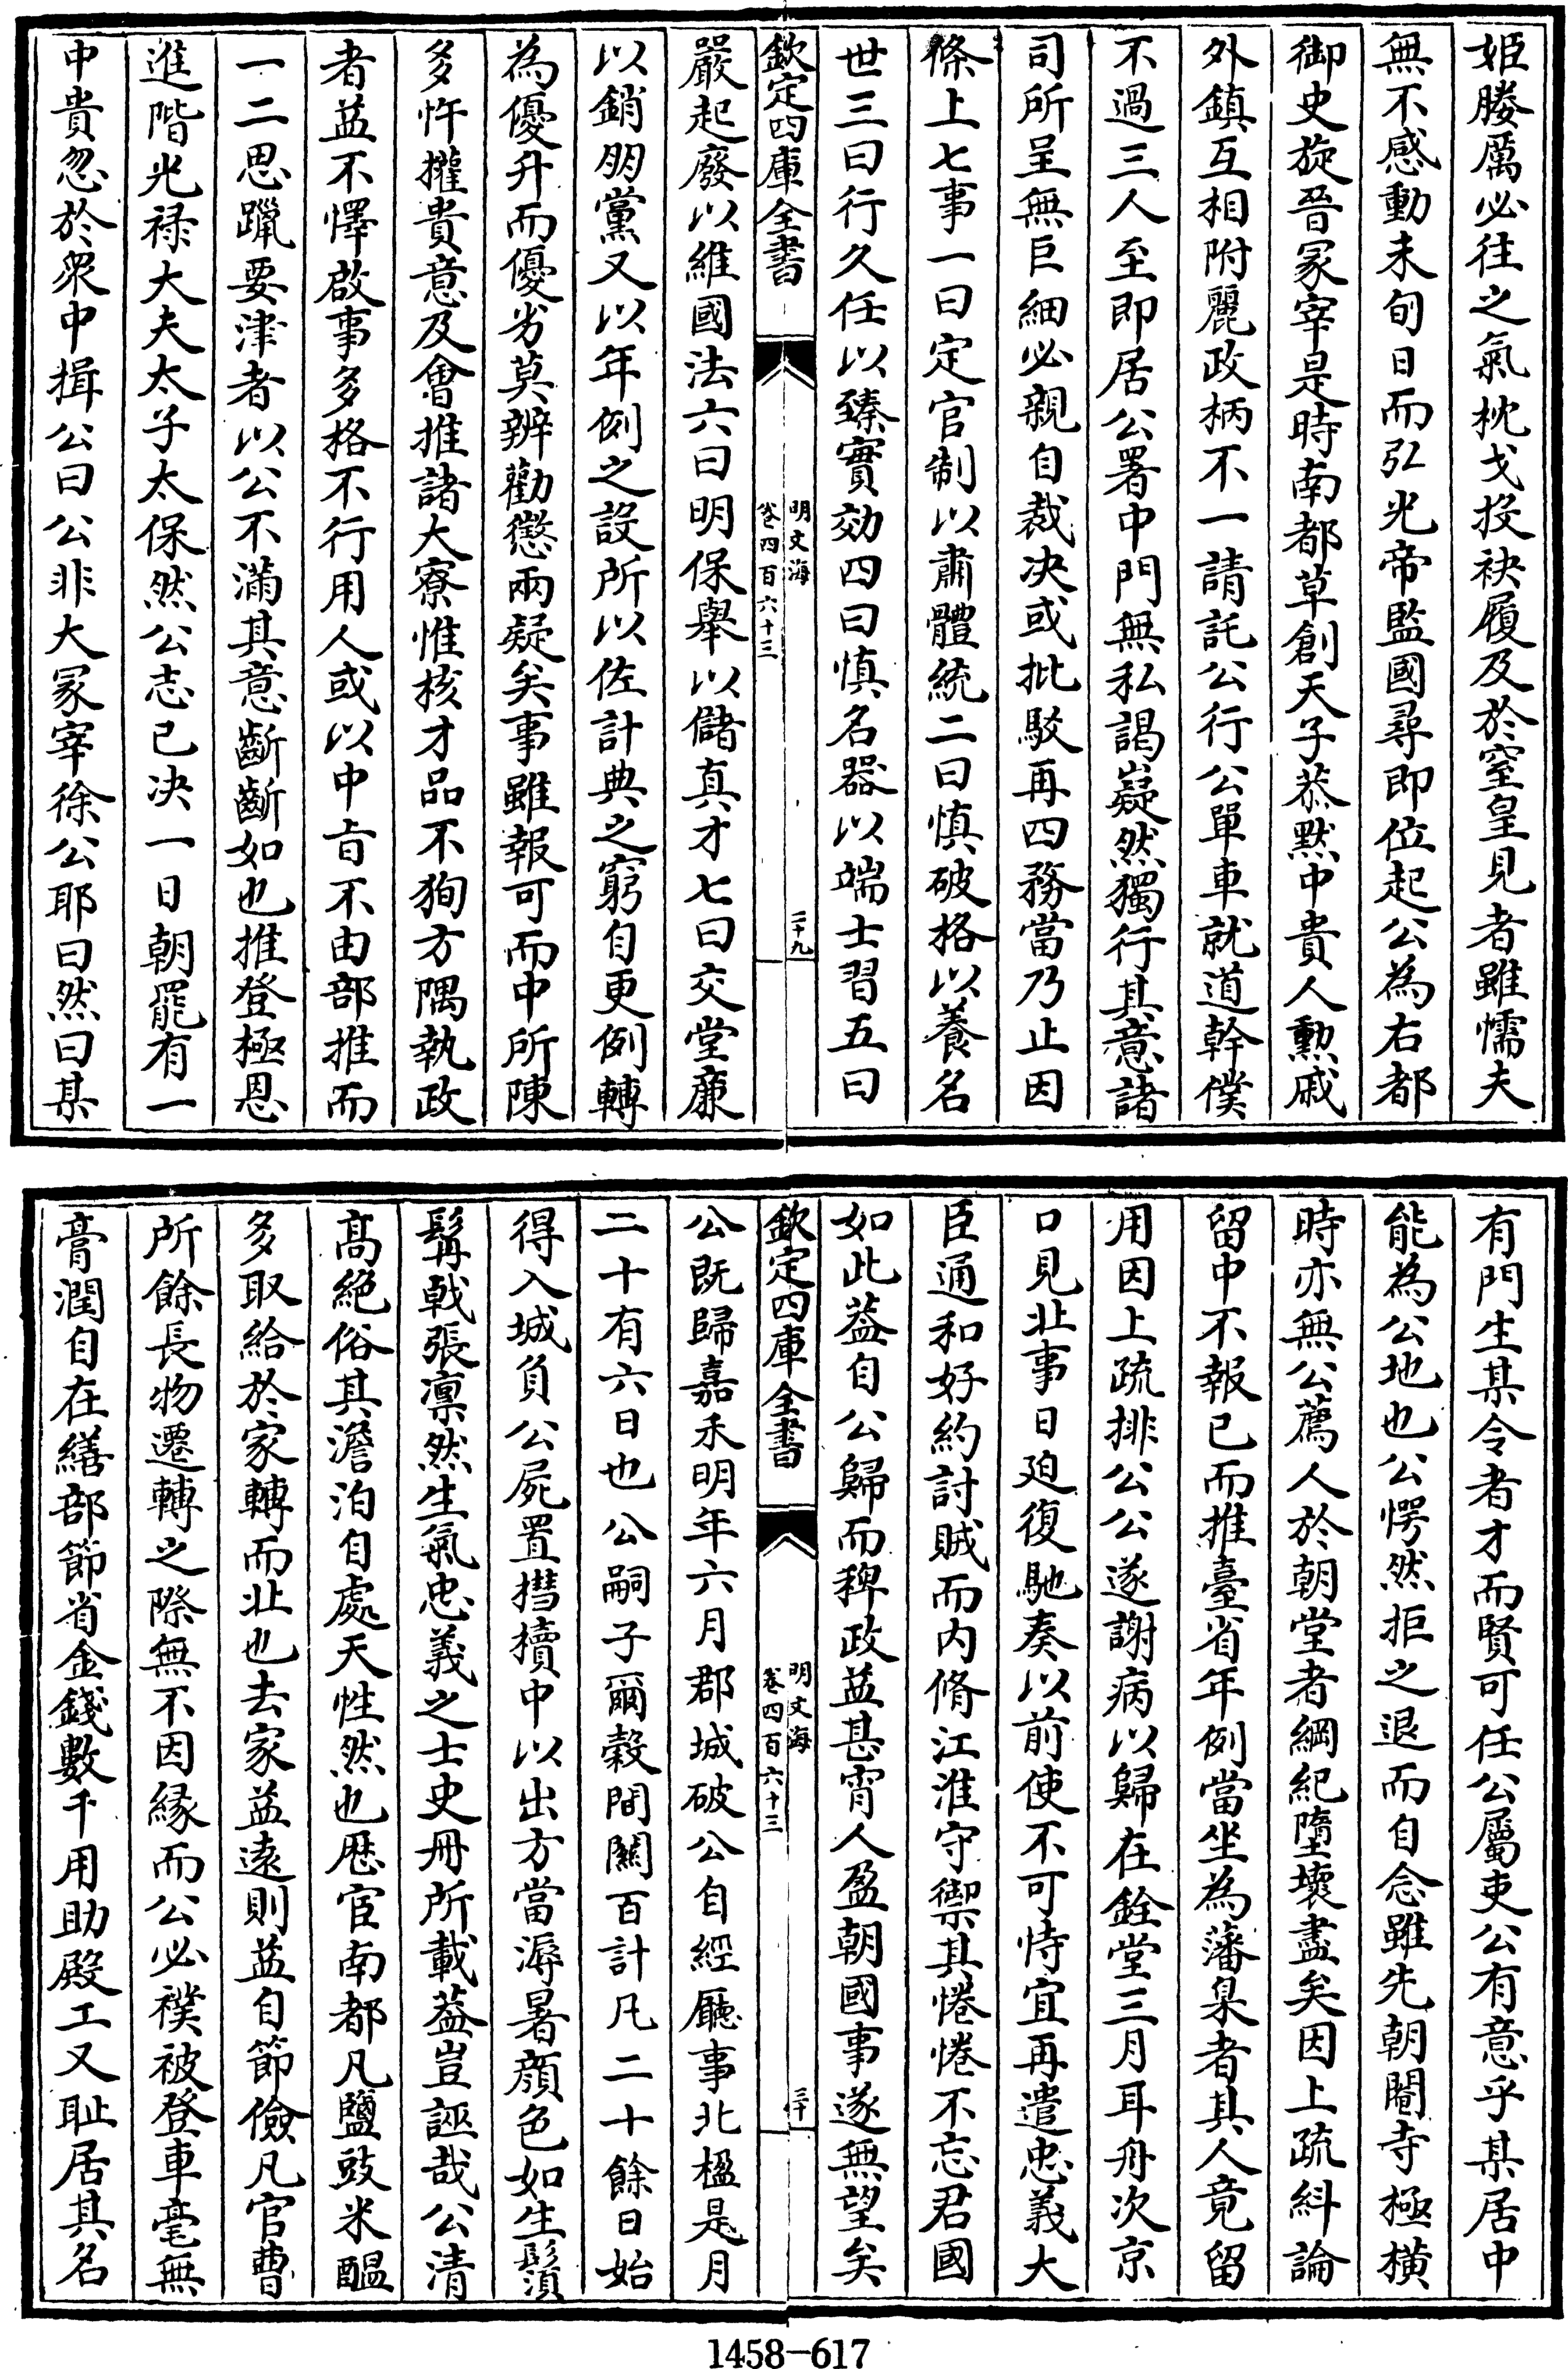 姬媵厲必往之氣枕戈投袂履及於窒皇見者雖懦夫
無不感動未旬日而弘光帝監國尋即位起公為右都
御史旋晉冢宰是時南都草創天子恭默中貴人勲戚
外鎮互相附麗政柄不一請託公行公單車就道幹僕
不過三人至即居公署中門無私謁嶷然獨行其意諸
司所呈無巨細必親自裁决或批駁再四務當乃止因
條上七事一曰定官制以肅體統二曰慎破格以養名
世三曰行久任以臻實効四曰慎名器以端士習五曰
欽定四庫全書
明文海
卷四百六十三
二十九
嚴起廢以維國法六曰明保舉以儲真才七曰交堂㢘
以銷朋黨又以年例之設所以佐計典之窮自更例轉
為優升而優劣莫辨勸懲兩疑矣事雖報可而中所陳
多忤權貴意及會推諸大寮惟核才品不狥方隅執政
者益不懌啟事多格不行用人或以中㫖不由部推而
一二思躐要津者以公不滿其意齗齗如也推登極恩
進階光禄大夫太子太保然公志已决一日朝罷有一
中貴忽於衆中揖公曰公非大冢宰徐公耶曰然曰某
有門生某令者才而賢可任公屬吏公有意乎某居中
能為公地也公愕然拒之退而自念雖先朝閹寺極橫
時亦無公薦人於朝堂者綱紀墮壞盡矣因上疏糾論
留中不報已而推臺省年例當坐為藩臬者其人竟留
用因上疏排公公遂謝病以歸在銓堂三月耳舟次京
口見北事日廹復馳奏以前使不可恃宜再遣忠義大
臣通和好約討賊而内脩江淮守禦其惓惓不忘君國
如此葢自公歸而稗政益甚宵人盈朝國事遂無望矣
欽定四庫全書
明文海
卷四百六十三
三十
公既歸嘉禾明年六月郡城破公自經廳事北楹是月
二十有六日也公嗣子爾榖間關百計凡二十餘日始
得入城負公屍置槥櫝中以出方當溽暑顔色如生鬚
髯戟張凛然生氣忠義之士史册所載葢豈誣哉公清
髙絶俗其澹泊自處天性然也厯宦南都凡鹽豉米醖
多取給於家轉而北也去家益逺則益自節儉凡官曹
所餘長物遷轉之際無不因緣而公必襆被登車毫無
膏潤自在繕部節省金錢數千用助殿工又耻居其名
1458-617